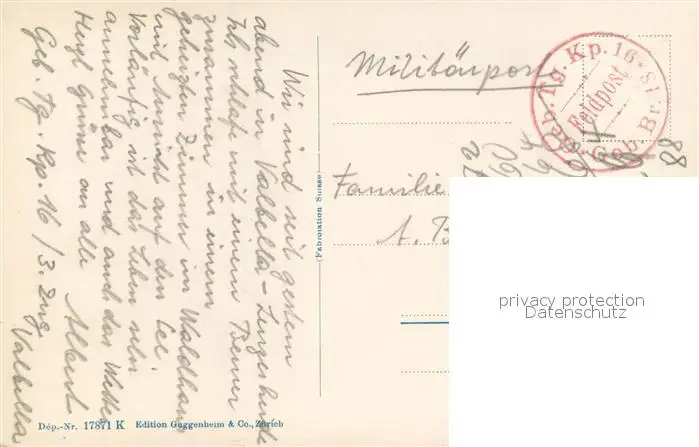 Wir sind seit gestern
abend in Valbella - Lenzerheide
Ich schlafe mit einem Berner
zusammen in einem
geheizten Zimmer im Waldhaus
mit Aussicht auf den See.
Vorläufig ist das Leben sehr
annehmbar und auch das Wetter
Herzl Grüsse an alle Albert
Geb. Tg. Kp. 16 / 3. Zug
Valbella
(Fabrication Suisse)
Dép.-Nr. 17871 K Edition Guggenheim & Co., Zürich
Militärpost
Geb. Tg. Kp. 16
Feldpost
Geb. Br.
88
Familie
A. B
privacy protection
Datenschutz